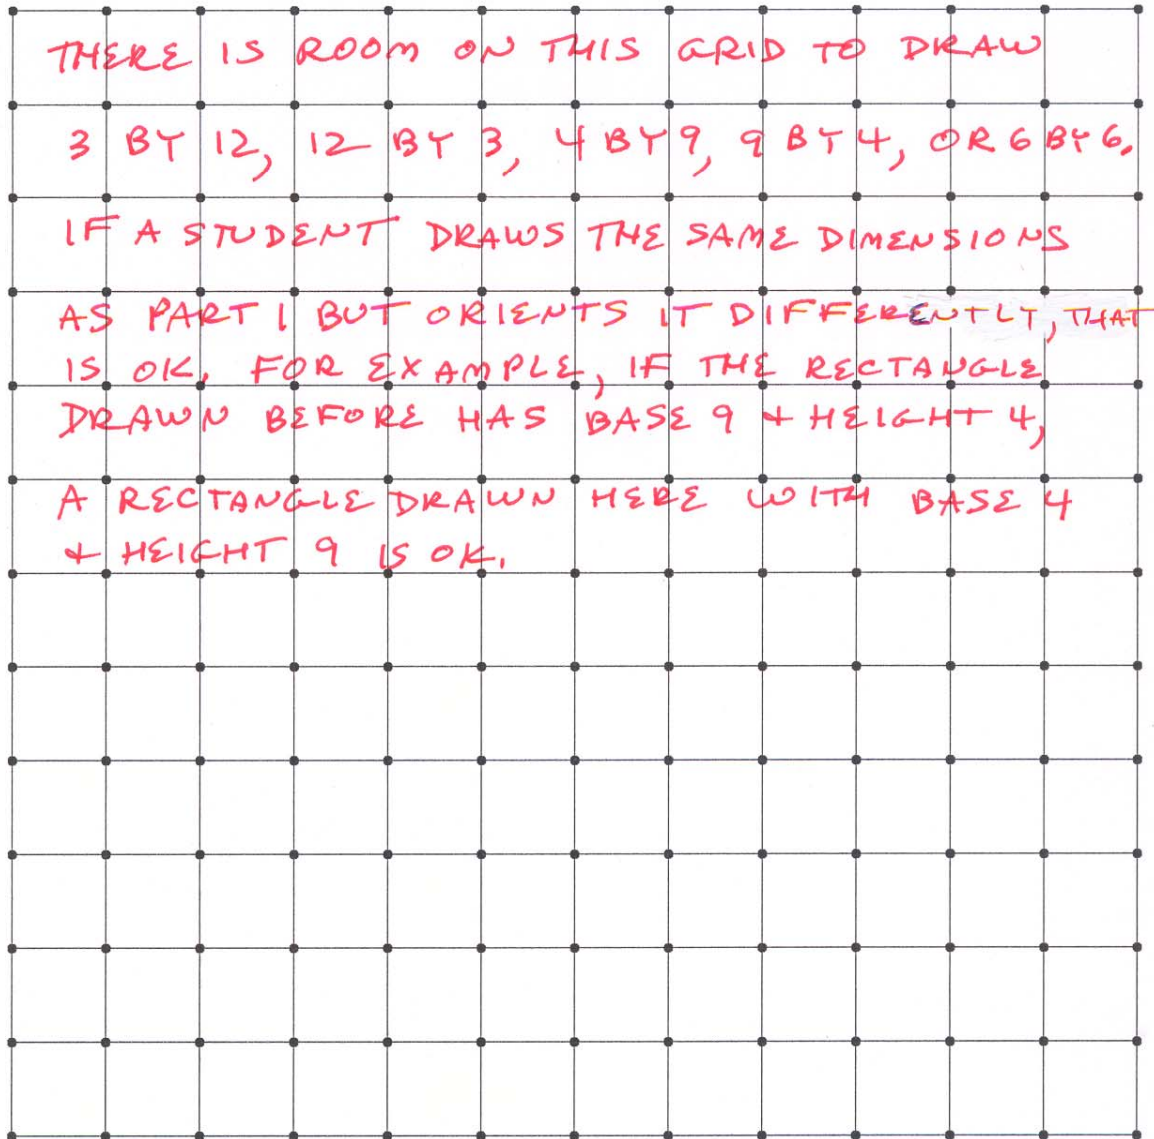 THERE IS ROOM ON THIS GRID TO DRAW
3 BY 12, 12 BY 3, 4 BY 9, 9 BY 4, OR 6 BY 6.
IF A STUDENT DRAWS THE SAME DIMENSIONS
AS PART 1 BUT ORIENTS IT DIFFERENTLY, THAT
IS OK. FOR EXAMPLE, IF THE RECTANGLE
DRAWN BEFORE HAS BASE 9 + HEIGHT 4,
A RECTANGLE DRAWN HERE WITH BASE 4
+ HEIGHT 9 IS OK.